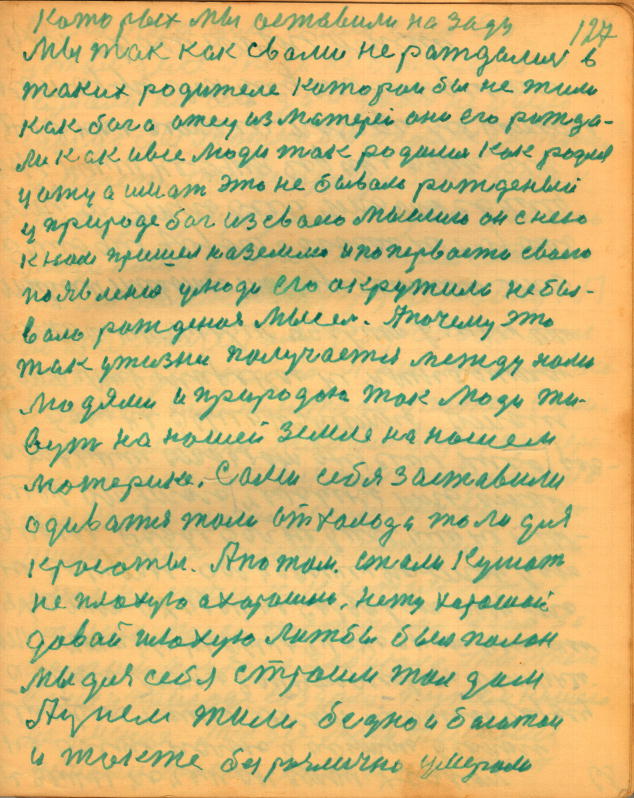 которых мы оставили на зади
127
Мы так как свами не раждалия в
таких родителе которои бы не жили
как бога отец из матереи они его ражда-
ли как и все люди так родился как родил
у отца и мат это не бывало рожденый
у природе бог из своею мыслию он снею
к нам пришел на землю и по первости своего
появления у люди его окружило небы-
вало рожденая мысел. А почему это
так ужизни получается между нами
людями и природою так люди жи-
вут на нашей земле на нашем
материке. Сами себя заставили
одиватся толи от холода толи для
красоты. А потом. стали кушат
не плохую а хорошию. нету хорошой
давай плохую лижбы был полон
мы для себя строим тол дом
А чием жили бедно и богатои
и также безразлично умерали